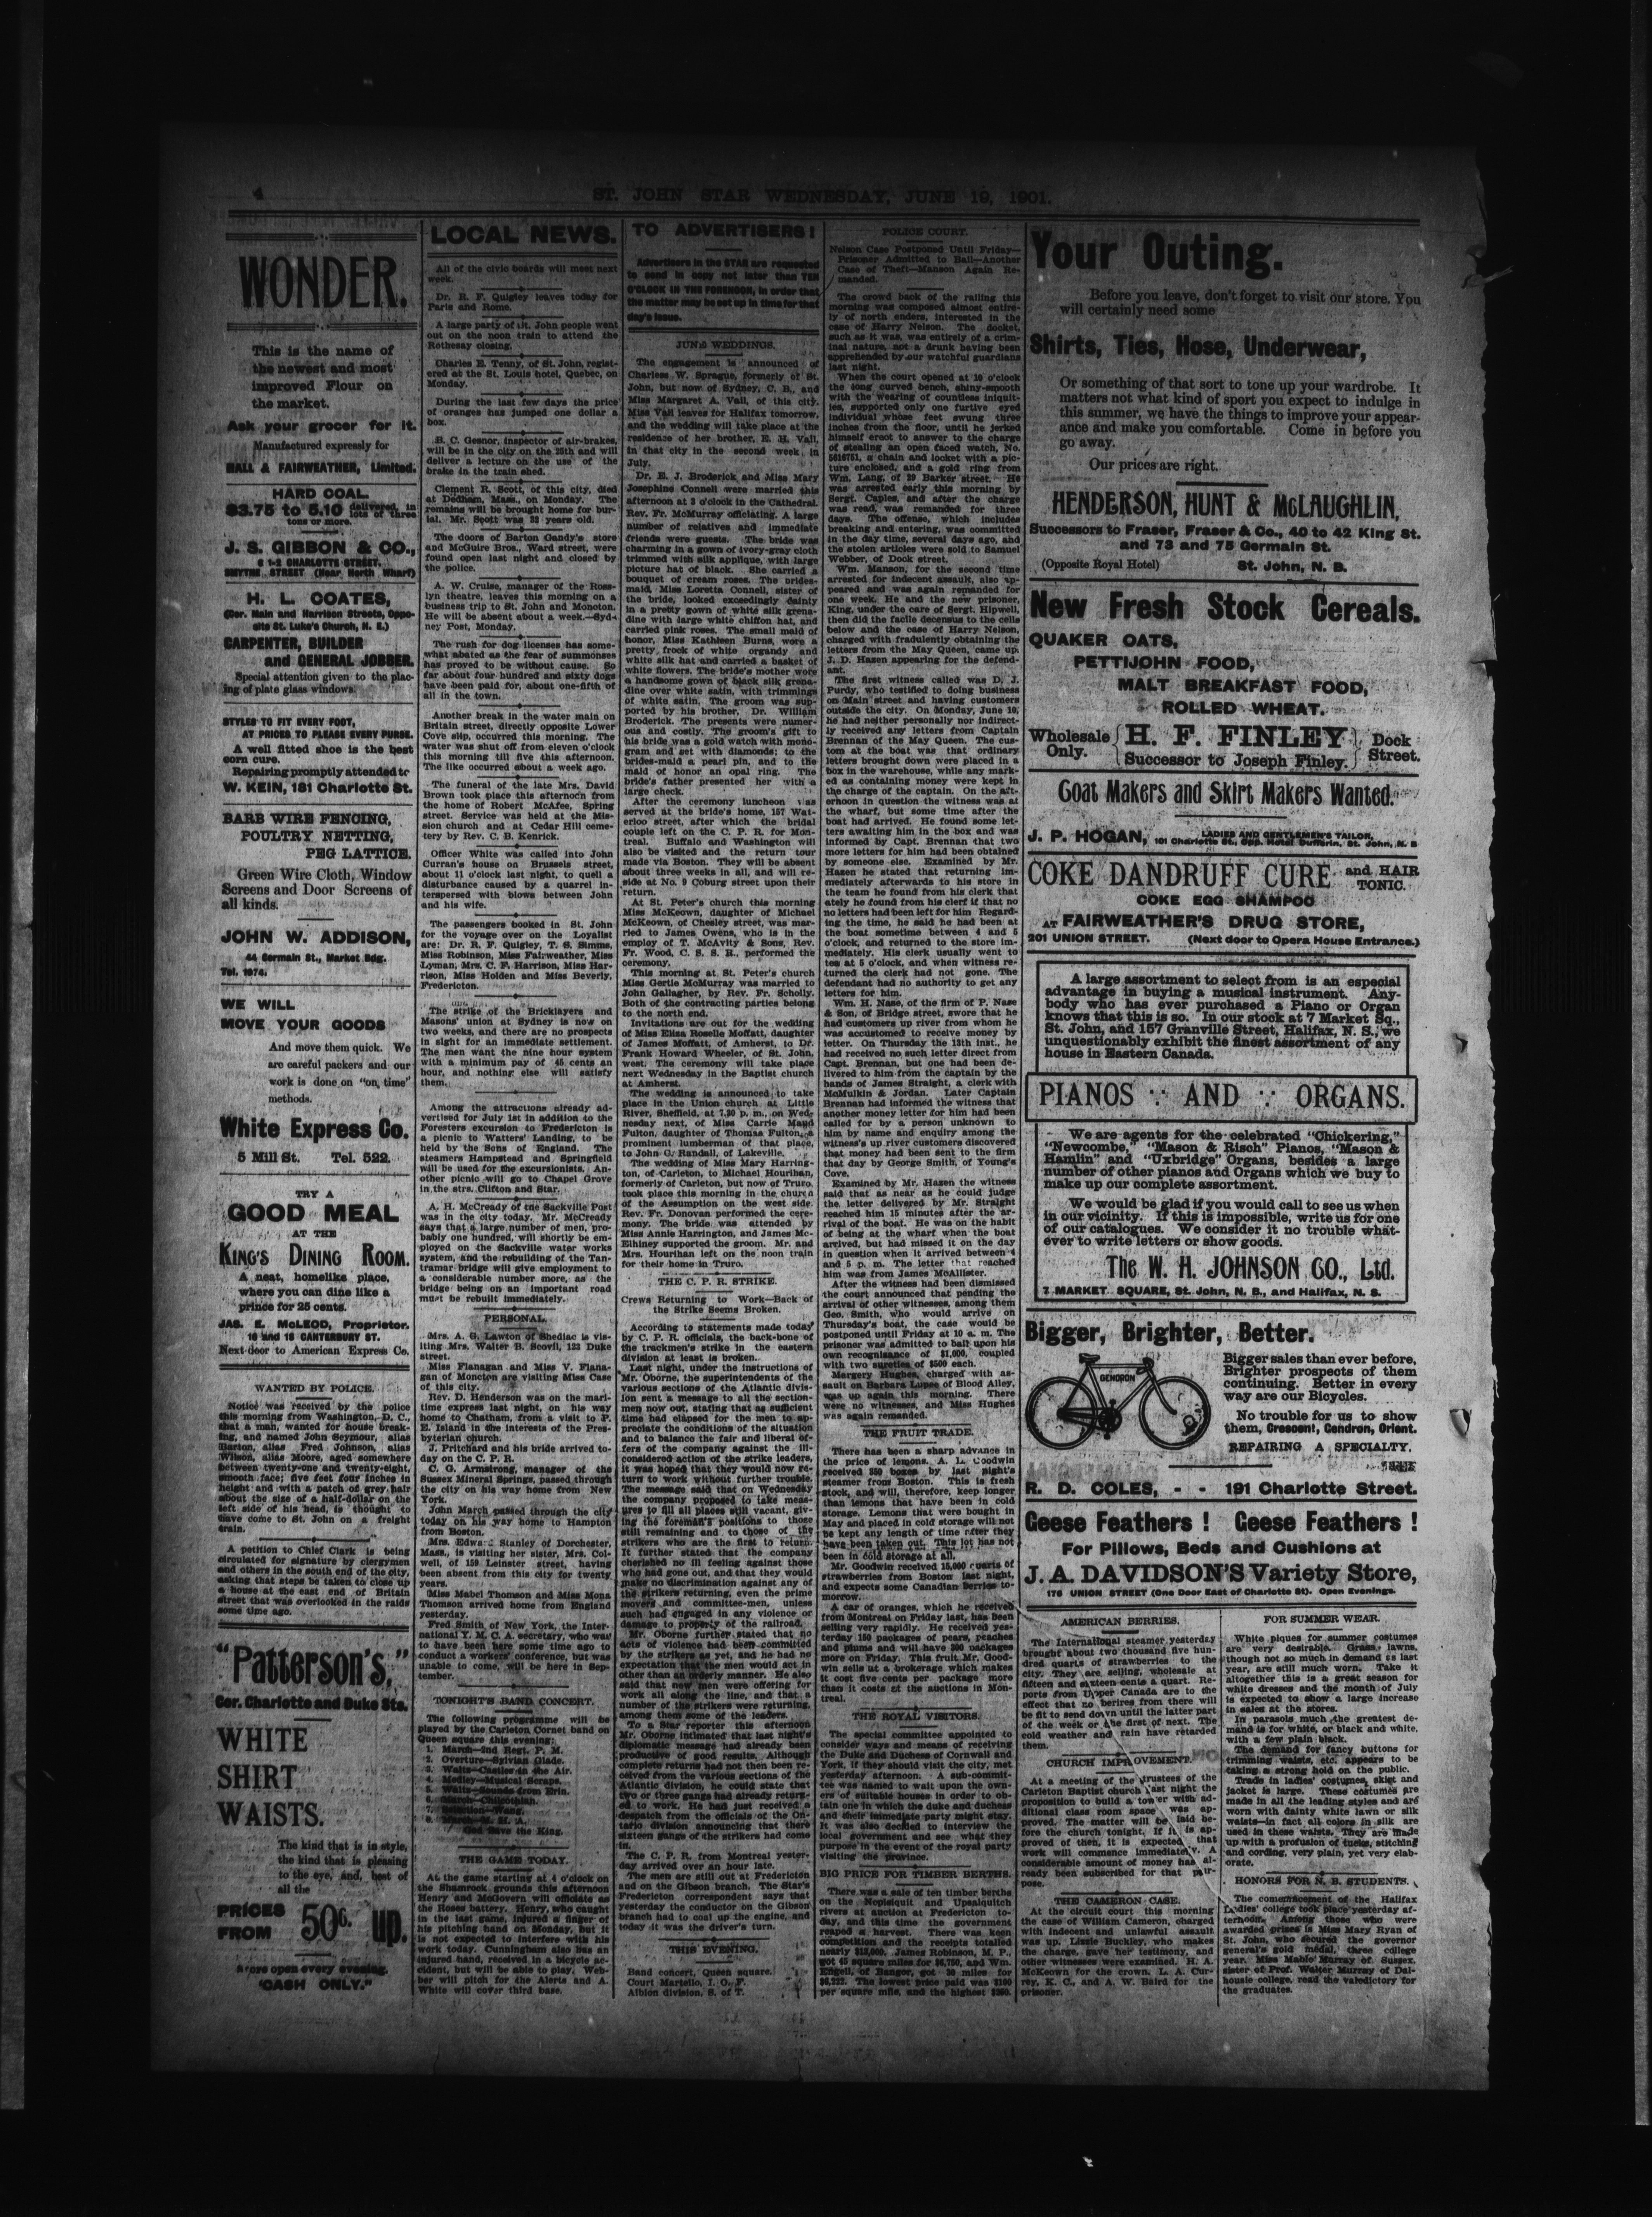 4
ST. JOHN STAR WEDNESDAY, JUNE 19, 1901.
WONDER.
This is the name of
the newest and most
improved Flour on
the market.
Ask your grocer for it.
Manufactured expressly for
HALL & FAIRWEATHER, Limited.
HARD COAL
$3.75 to 5.10 delivered, in
lots of three
tons or more.
J. S. GIBBON & CO.,
6 1-2 CHARLOTTE STREET.
SMYTHE STREET (Near North Wharf)
H. L. COATES,
(Cor. Main and Harrison Streets, Oppo-
site St. Luke's Church, N. E.)
CARPENTER, BUILDER
and GENERAL JOBBER.
Special attention given to the plac-
ing of plate glass windows.
STYLES TO FIT EVERY FOOT,
AT PRICES TO PLEASE EVERY PURSE.
A well fitted shoe is the best
corn cure.
Repairing promptly attended to
W. KEIN, 181 Charlotte St.
BARB WIRE FENCING,
POULTRY NETTING,
PEG LATTICE.
Green Wire Cloth, Window
Screens and Door Screens of
all kinds.
JOHN W. ADDISON,
44 Germain St., Market Bdg.
Tel. 1074.
WE WILL
MOVE YOUR GOODS
And move them quick. We
are careful packers and our
work is done on "on time"
methods.
White Express Co.
5 Mill St. Tel. 522.
TRY A
GOOD MEAL
AT THE
KING'S DINING ROOM.
A neat, homelike place,
where you can dine like a
prince for 25 cents.
JAS. E. McLEOD, Proprietor.
16 and 18 CANTERBURY ST.
Next door to American Express Co.
WANTED BY POLICE.
Notice was received by the police
this morning from Washington, D. C.,
that a man, wanted for house break-
ing, and named John Seymour, alias
Barton, alias Fred Johnson, alias
Wilson, alias Moore, aged somewhere
between twenty-one and twenty-eight,
smooth face; five feet four inches in
height and with a patch of grey hair
about the size of a half-dollar on the
left side of his head, is thought to
have come to St. John on a freight
train.
A petition to Chief Clark is being
circulated for signature by clergymen
and others in the south end of the city,
asking that steps be taken to close up
a house at the east end of Britain
street that was overlooked in the raids
some time ago.
"Patterson's,"
Cor. Charlotte and Duke Sts.
WHITE
SHIRT
WAISTS.
The kind that is in style,
the kind that is pleasing
to the eye, and, best of
all the
PRICES
FROM 50c. up.
Store open every evening.
"CASH ONLY."
LOCAL NEWS.
All of the civic boards will meet next
week.
Dr. R. F. Quigley leaves today for
Paris and Rome.
A large party of St. John people went
out on the noon train to attend the
Rothesay closing.
Charles E. Tenny, of St. John, regist-
ered at the St. Louis hotel, Quebec, on
Monday.
During the last few days the price
of oranges has jumped one dollar a
box.
B. C. Gesnor, inspector of air-brakes,
will be in the city on the 25th and will
deliver a lecture on the use of the
brake in the train shed.
Clement R. Scott, of this city, died
at Dedham, Mass., on Monday. The
remains will be brought home for bur-
ial. Mr. Scott was 22 years old.
The doors of Barton Gandy's store
and McGuire Bros., Ward street, were
found open last night and closed by
the police.
A. W. Cruise, manager of the Ross-
lyn theatre, leaves this morning on a
business trip to St. John and Moncton.
He will be absent about a week.—Syd-
ney Post, Monday.
The rush for dog licenses has some-
what abated as the fear of summonses
has proved to be without cause. So
far about four hundred and sixty dogs
have been paid for, about one-fifth of
all in the town.
Another break in the water main on
Britain street, directly opposite Lower
Cove slip, occurred this morning. The
water was shut off from eleven o'clock
this morning till five this afternoon.
The like occurred about a week ago.
The funeral of the late Mrs. David
Brown took place this afternoon from
the home of Robert McAfee, Spring
street. Service was held at the Mis-
sion church and at Cedar Hill ceme-
tery by Rev. C. B. Kenrick.
Officer White was called into John
Curran's house on Brussels street,
about 11 o'clock last night, to quell a
disturbance caused by a quarrel in-
terspersed with blows between John
and his wife.
The passengers booked in St. John
for the voyage over on the Loyalist
are: Dr. R. F. Quigley, T. S. Simms,
Miss Robinson, Miss Fairweather, Miss
Lyman, Mrs. C. F. Harrison, Miss Har-
rison, Miss Holden and Miss Beverly,
Fredericton.
The strike of the Bricklayers and
Masons' union at Sydney is now on
two weeks, and there are no prospects
in sight for an immediate settlement.
The men want the nine hour system
with a minimum pay of 45 cents an
hour, and nothing else will satisfy
them.
Among the attractions already ad-
vertised for July 1st in addition to the
Foresters excursion to Fredericton is
a picnic to Watters' Landing, to be
held by the Sons of England. The
steamers Hampstead and Springfield
will be used for the excursionists. An-
other picnic will go to Chapel Grove
in the strs. Clifton and Star.
A. H. McCready of the Sackville Post
was in the city today. Mr. McCready
says that a large number of men, pro-
bably one hundred, will shortly be em-
ployed on the Sackville water works
system, and the rebuilding of the Tan-
tramar bridge will give employment to
a considerable number more, as the
bridge being on an important road
must be rebuilt immediately.
PERSONAL.
Mrs. A. G. Lawton of Shediac is vis-
iting Mrs. Walter B. Scovil, 123 Duke
street.
Miss Flanagan and Miss V. Flana-
gan of Moncton are visiting Miss Case
of this city.
Rev. D. Henderson was on the mari-
time express last night, on his way
home to Chatham, from a visit to P.
E. Island in the interests of the Pres-
byterian church.
J. Pritchard and his bride arrived to-
day on the C. P. R.
C. G. Armstrong, manager of the
Sussex Mineral Springs, passed through
the city on his way home from New
York.
John March passed through the city
today on his way home to Hampton
from Boston.
Mrs. Edward Stanley of Dorchester,
Mass., is visiting her sister, Mrs. Col-
well, of 159 Leinster street, having
been absent from this city for twenty
years.
Miss Mabel Thomson and Miss Mona
Thomson arrived home from England
yesterday.
Fred Smith, of New York, the Inter-
national Y. M. C. A. secretary, who was
to have been here some time ago to
conduct a workers' conference, but was
unable to come, will be here in Sep-
tember.
TONIGHT'S BAND CONCERT.
The following programme will be
played by the Carleton Cornet band on
Queen square this evening:
1. March—2nd Regt. P. M.
2. Overture—Sylvian Glade.
3. Waltz—Castles in the Air.
4. Medley—Musical Scraps.
5. Waltz—Sounds from Erin.
6. March—
7.
8. March—
God Save the King.
THE GAME TODAY.
At the game starting at 4 o'clock on
the Shamrock grounds this afternoon
Henry and McGovern will officiate as
the Roses battery. Henry, who caught
in the last game, injured a finger of
his pitching hand on Monday, but it
is not expected to interfere with his
work today. Cunningham also has an
injured hand, received in a bicycle ac-
cident, but will be able to play. Web-
ber will pitch for the Alerts and A.
White will cover third base.
TO ADVERTISERS!
Advertisers in the STAR are requested
to send in copy not later than TEN
O'CLOCK IN THE FORENOON, in order that
the matter may be set up in time for that
day's issue.
JUNE WEDDINGS.
The engagement is announced of
Charless W. Sprague, formerly of St.
John, but now of Sydney, C. B., and
Miss Margaret A. Vail, of this city.
Miss Vail leaves for Halifax tomorrow,
and the wedding will take place at the
residence of her brother, E. H. Vail,
in that city in the second week in
July.
Dr. E. J. Broderick and Miss Mary
Josephine Connell were married this
afternoon at 3 o'clock in the Cathedral.
Rev. Fr. McMurray officiating. A large
number of relatives and immediate
friends were guests. The bride was
charming in a gown of ivory-gray cloth
trimmed with silk applique, with large
picture hat of black. She carried a
bouquet of cream roses. The brides-
maid, Miss Loretta Connell, sister of
the bride, looked exceedingly dainty
in a pretty gown of white silk grena-
dine with large white chiffon hat, and
carried pink roses. The small maid of
honor, Miss Kathleen Burns, wore a
pretty frock of white organdy and
white silk hat and carried a basket of
white flowers. The bride's mother wore
a handsome gown of black silk grena-
dine over white satin, with trimmings
of white satin. The groom was sup-
ported by his brother, Dr. William
Broderick. The presents were numer-
ous and costly. The groom's gift to
his bride was a gold watch with mono-
gram and set with diamonds; to the
brides-maid a pearl pin, and to the
maid of honor an opal ring. The
bride's father presented her with a
large check.
After the ceremony luncheon was
served at the bride's home, 157 Wat-
erloo street, after which the bridal
couple left on the C. P. R. for Mon-
treal. Buffalo and Washington will
also be visited and the return tour
made via Boston. They will be absent
about three weeks in all, and will re-
side at No. 9 Coburg street upon their
return.
At St. Peter's church this morning
Miss McKeown, daughter of Michael
McKeown, of Chesley street, was mar-
ried to James Owens, who is in the
employ of T. McAvity & Sons, Rev.
Fr. Wood, C. S. S. R., performed the
ceremony.
This morning at St. Peter's church
Miss Gertie McMurray was married to
John Gallagher, by Rev. Fr. Scholly.
Both of the contracting parties belong
to the north end.
Invitations are out for the wedding
of Miss Eliza Roselle Moffatt, daughter
of James Moffatt, of Amherst, to Dr.
Frank Howard Wheeler, of St. John,
west: The ceremony will take place
next Wednesday in the Baptist church
at Amherst.
The wedding is announced to take
place in the Union church at Little
River, Sheffield, at 7.30 p. m., on Wed-
nesday next, of Miss Carrie Maud
Fulton, daughter of Thomas Fulton, a
prominent lumberman of that place,
to John G. Randall, of Lakeville.
The wedding of Miss Mary Harring-
ton, of Carleton, to Michael Hourihan,
formerly of Carleton, but now of Truro,
took place this morning in the church
of the Assumption on the west side.
Rev. Fr. Donovan performed the cere-
mony. The bride was attended by
Miss Annie Harrington, and James Mc-
Elhiney supported the groom. Mr. and
Mrs. Hourihan left on the noon train
for their home in Truro.
THE C. P. R. STRIKE.
Crews Returning to Work—Back of
the Strike Seems Broken.
According to statements made today
by C. P. R. officials, the back-bone of
the trackmen's strike in the eastern
division at least is broken.
Last night, under the instructions of
Mr. Oborne, the superintendents of the
various sections of the Atlantic divis-
ion sent a message to all the section-
men now out, stating that as sufficient
time had elapsed for the men to ap-
preciate the conditions of the situation
and to balance the fair and liberal of-
fers of the company against the ill-
considered action of the strike leaders,
it was hoped that they would now re-
turn to work without further trouble.
The message said that on Wednesday
the company proposed to take meas-
ures to fill all places still vacant, giv-
ing the foreman's positions to those
still remaining and to those of the
strikers who are the first to return.
It further stated that the company
cherished no ill feeling against those
who had gone out, and that they would
make no discrimination against any of
the strikers returning, even the prime
movers and committee-men, unless
such had engaged in any violence or
damage to property of the railroad.
Mr. Oborne further stated that no
acts of violence had been committed
by the strikers as yet, and he had no
expectation that the men would act in
other than an orderly manner. He also
said that new men were offering for
work all along the line, and that a
number of the strikers were returning,
among them some of the leaders.
To a Star reporter this afternoon
Mr. Oborne intimated that last night's
diplomatic message had already been
productive of good results. Although
complete returns had not then been re-
ceived from the various sections of the
Atlantic division, he could state that
two or three gangs had already return-
ed to work. He had just received a
despatch from the officials of the On-
tario division announcing that there
sixteen gangs of the strikers had come
in.
The C. P. R. from Montreal yester-
day arrived over an hour late.
The men are still out at Fredericton
and on the Gibson branch. The Star's
Fredericton correspondent says that
yesterday the conductor on the Gibson
branch had to coal up the engine, and
today it was the driver's turn.
THIS EVENING.
Band concert, Queen square.
Court Martello, I. O. F.
Albion division, S. of T.
POLICE COURT.
Nelson Case Postponed Until Friday—
Prisoner Admitted to Bail—Another
Case of Theft—Manson Again Re-
manded.
The crowd back of the railing this
morning was composed almost entire-
ly of north enders, interested in the
case of Harry Nelson. The docket,
such as it was, was entirely of a crim-
inal nature, not a drunk having been
apprehended by our watchful guardians
last night.
When the court opened at 10 o'clock
the long curved bench, shiny-smooth
with the wearing of countless iniquit-
ies, supported only one furtive eyed
individual whose feet swung three
inches from the floor, until he jerked
himself erect to answer to the charge
of stealing an open faced watch, No.
5616751, a chain and locket with a pic-
ture enclosed, and a gold ring from
Wm. Lang, of 29 Barker street. He
was arrested early this morning by
Sergt. Caples, and after the charge
was read, was remanded for three
days. The offense, which includes
breaking and entering, was committed
in the day time, several days ago, and
the stolen articles were sold to Samuel
Webber, of Dock street.
Wm. Manson, for the second time
arrested for indecent assault, also ap-
peared and was again remanded for
one week. He and the new prisoner,
King, under the care of Sergt. Hipwell,
then did the facile decensus to the cells
below and the case of Harry Nelson,
charged with fradulently obtaining the
letters from the May Queen, came up.
J. D. Hazen appearing for the defend-
ant.
The first witness called was D. J.
Purdy, who testified to doing business
on Main street and having customers
outside the city. On Monday, June 10,
he had neither personally nor indirect-
ly received any letters from Captain
Brennan of the May Queen. The cus-
tom at the boat was that ordinary
letters brought down were placed in a
box in the warehouse, while any mark-
ed as containing money were kept in
the charge of the captain. On the aft-
ernoon in question the witness was at
the wharf, but some time after the
boat had arrived. He found some let-
ters awaiting him in the box and was
informed by Capt. Brennan that two
more letters for him had been obtained
by someone else. Examined by Mr.
Hazen he stated that returning im-
mediately afterwards to his store in
the team he found from his clerk that
ately he found from his clerf if that no
no letters had been left for him Regard-
ing the time, he said he had been at
the boat sometime between 4 and 5
o'clock, and returned to the store im-
mediately. His clerk usually went to
tea at 5 o'clock, and when witness re-
turned the clerk had not gone. The
defendant had no authority to get any
letters for him.
Wm. H. Nase, of the firm of P. Nase
& Son, of Bridge street, swore that he
had customers up river from whom he
was accustomed to receive money by
letter. On Thursday the 13th inst., he
had received no such letter direct from
Capt. Brennan, but one had been de-
livered to him from the captain by the
hands of James Straight, a clerk with
McMulkin & Jordan. Later Captain
Brennan had informed the witness that
another money letter for him had been
called for by a person unknown to
him by name and enquiry among the
witness's up river customers discovered
that money had been sent to the firm
that day by George Smith, of Young's
Cove.
Examined by Mr. Hazen the witness
said that as near as he could judge
the letter delivered by Mr. Straight
reached him 15 minutes after the ar-
rival of the boat. He was on the habit
of being at the wharf when the boat
arrived, but had missed it on the day
in question when it arrived between 4
and 5 p. m. The letter that reached
him was from James McAllister.
After the witness had been dismissed
the court announced that pending the
arrival of other witnesses, among them
Geo. Smith, who would arrive on
Thursday's boat, the case would be
postponed until Friday at 10 a. m. The
prisoner was admitted to bail upon his
own recognizance of $1,000, coupled
with two sureties of $500 each.
Margery Hughes, charged with as-
sault on Barbara Lupee of Blood Alley,
was up again this morning. There
were no witnesses, and Miss Hughes
was again remanded.
THE FRUIT TRADE.
There has been a sharp advance in
the price of lemons. A. L. Goodwin
received 350 boxes by last night's
steamer from Boston. This is fresh
stock, and will, therefore, keep longer
than lemons that have been in cold
storage. Lemons that were bought in
May and placed in cold storage will not
be kept any length of time after they
have been taken out. This lot has not
been in cold storage at all.
Mr. Goodwin received 15,000 quarts of
strawberries from Boston last night,
and expects some Canadian berries to-
morrow.
A car of oranges, which he received
from Montreal on Friday last, has been
selling very rapidly. He received yes-
terday 150 packages of pears, peaches
and plums and will have 300 packages
more on Friday. This fruit Mr. Good-
win sells at a brokerage which makes
it cost five cents per package more
than it costs at the auctions in Mon-
treal.
THE ROYAL VISITORS.
The special committee appointed to
consider ways and means of receiving
the Duke and Duchess of Cornwall and
York, if they should visit the city, met
yesterday afternoon. A sub-commit-
tee was named to wait upon the own-
ers of suitable houses in order to ob-
tain one in which the duke and duchess
and their immediate party might stay.
It was also decided to interview the
local government and see what they
purpose in the event of the royal party
visiting the province.
BIG PRICE FOR TIMBER BERTHS.
There was a sale of ten timber berths
on the Nepisiquit and Upsalquitch
rivers at auction at Fredericton to-
day, and this time the government
reaped a harvest. There was keen
competition and the receipts totalled
nearly $13,000. James Robinson, M. P.,
got 45 square miles for $6,750, and Wm.
Engell, of Bangor, got 30 miles for
$6,222. The lowest price paid was $100
per square mile, and the highest $260.
Your Outing.
Before you leave, don't forget to visit our store. You
will certainly need some
Shirts, Ties, Hose, Underwear,
Or something of that sort to tone up your wardrobe. It
matters not what kind of sport you expect to indulge in
this summer, we have the things to improve your appear-
ance and make you comfortable. Come in before you
go away.
Our prices are right.
HENDERSON, HUNT & McLAUGHLIN,
Successors to Fraser, Fraser & Co., 40 to 42 King St.
and 73 and 75 Germain St.
(Opposite Royal Hotel) St. John, N. B.
New Fresh Stock Cereals.
QUAKER OATS,
PETTIJOHN FOOD,
MALT BREAKFAST FOOD,
ROLLED WHEAT.
Wholesale Only. H. F. FINLEY Dock Street.
Successor to Joseph Finley.
Coat Makers and Skirt Makers Wanted.
J. P. HOGAN, LADIES AND GENTLEMEN'S TAILOR,
101 Charlotte St., Opp. Hotel Dufferin, St. John, N. B
COKE DANDRUFF CURE and HAIR TONIC.
COKE EGG SHAMPOO
AT FAIRWEATHER'S DRUG STORE,
201 UNION STREET. (Next door to Opera House Entrance.)
A large assortment to select from is an especial
advantage in buying a musical instrument. Any-
body who has ever purchased a Piano or Organ
knows that this is so. In our stock at 7 Market Sq.,
St. John, and 157 Granville Street, Halifax, N. S., we
unquestionably exhibit the finest assortment of any
house in Eastern Canada.
PIANOS AND ORGANS.
We are agents for the celebrated "Chickering,"
"Newcombe," "Mason & Risch" Pianos, "Mason &
Hamlin" and "Uxbridge" Organs, besides a large
number of other pianos and Organs which we buy to
make up our complete assortment.
We would be glad if you would call to see us when
in our vicinity. If this is impossible, write us for one
of our catalogues. We consider it no trouble what-
ever to write letters or show goods.
The W. H. JOHNSON CO., Ltd.
7 MARKET SQUARE, St. John, N. B., and Halifax, N. S.
Bigger, Brighter, Better.
GENDRON
Bigger sales than ever before,
Brighter prospects of them
continuing. Better in every
way are our Bicycles.
No trouble for us to show
them, Crescent, Gendron, Orient.
REPAIRING A SPECIALTY.
R. D. COLES, - - 191 Charlotte Street.
Geese Feathers! Geese Feathers!
For Pillows, Beds and Cushions at
J. A. DAVIDSON'S Variety Store,
176 UNION STREET (One Door East of Charlotte St). Open Evenings.
AMERICAN BERRIES.
The International steamer yesterday
brought about two thousand five hun-
dred quarts of strawberries to the
city. They are selling, wholesale at
fifteen and sixteen cents a quart. Re-
ports from Upper Canada are to the
effect that no berires from there will
be fit to send down until the latter part
of the week or the first of next. The
cold weather and rain have retarded
them.
CHURCH IMPROVEMENT.
At a meeting of the trustees of the
Carleton Baptist church last night the
proposition to build a tower with ad-
ditional class room space was ap-
proved. The matter will be laid be-
fore the church tonight. If it is ap-
proved of then, it is expected that
work will commence immediately. A
considerable amount of money has al-
ready been subscribed for that pur-
pose.
THE CAMERON CASE.
At the circuit court this morning
the case of William Cameron, charged
with indecent and unlawful assault
was up. Lizzie Buckley, who makes
the charge, gave her testimony, and
other witnesses were examined. H. A.
McKeown for the crown. L. A. Cur-
rey, K. C., and A. W. Baird for the
prisoner.
FOR SUMMER WEAR.
White piques for summer costumes
are very desirable. Grass lawns,
though not so much in demand as last
year, are still much worn. Take it
altogether this is a great season for
white dresses and the month of July
is expected to show a large increase
in sales at the stores.
In parasols much the greatest de-
mand is for white, or black and white,
with a few plain black.
The demand for fancy buttons for
trimming waists, etc. appears to be
taking a strong hold on the public.
Trade in ladies' costumes, skirt and
jacket is large. These costumes are
made in all the leading styles and are
worn with dainty white lawn or silk
waists—in fact all colors in silk are
used in these waists. They are made
up with a profusion of tucks, stitching
and cording, very plain, yet very elab-
orate.
HONORS FOR N. B. STUDENTS.
The comemncement of the Halifax
Ladies' college took place yesterday af-
ternoon. Among those who were
awarded prizes is Miss Mary Ryan of
St. John, who secured the governor
general's gold medal, three college
year. Miss Mable Murray of Sussex,
sister of Prof. Walter Murray of Dal-
housie college, read the valedictory for
the graduates.